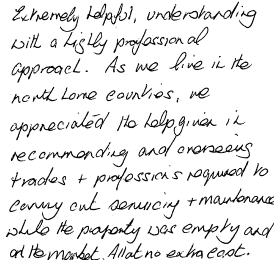 Extremely helpful, understanding
with a highly professional
approach. As we live in the
north home counties, we
appreciated the help given in
recommending and overseeing
trades + professions required to
carry out servicing + maintenance
while the property was empty and
on the market. All at no extra cost.